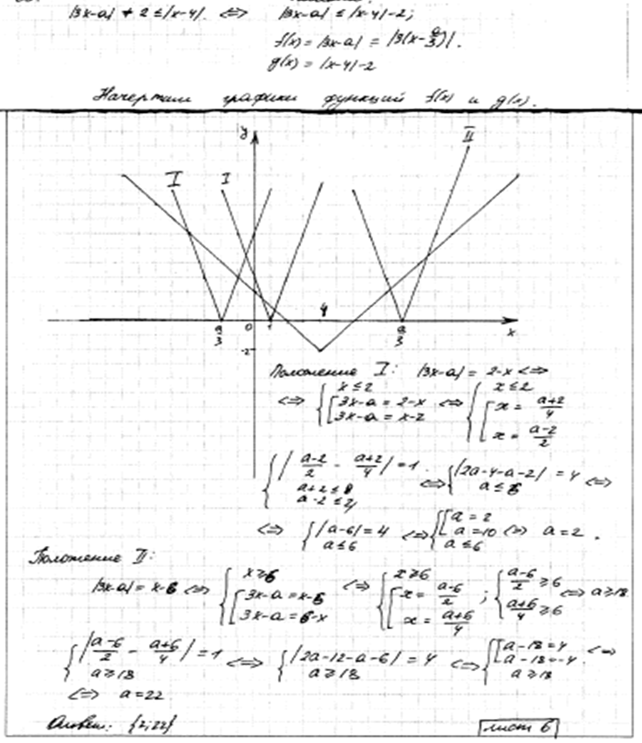 |3x-a| + 2 ≤ |x-4|. ⇔ |3x-a| ≤ |x-4|-2;
f(x) = |3x-a| = |3(x-a/3)|.
g(x) = |x-4|-2
Начертим графики функций f(x) и g(x).
y
I I II
4
a/3 0 1 a/3 x
-2
Положение I: |3x-a| = 2-x ⇔
⇔ { x ≤ 2 [ 3x-a = 2-x 3x-a = x-2 ⇔ { x ≤ 2 [ x = (a+2)/4 x = (a-2)/2
{ |(a-2)/2 - (a+2)/4| = 1 a+2 ≤ 8 a-2 ≤ 2/ ⇔ { |2a-4-a-2| = 4 a ≤ 6 ⇔
⇔ { |a-6| = 4 a ≤ 6 ⇔ { [ a = 2 a = 10 a ≤ 6 ⇔ a = 2.
Положение II:
|3x-a| = x-6 ⇔ { x ≥ 6 [ 3x-a = x-6 3x-a = 6-x ⇔ { x ≥ 6 [ x = (a-6)/2 x = (a+6)/4 ; { (a-6)/2 ≥ 6 (a+6)/4 ≥ 6 ⇔ a ≥ 18
{ |(a-6)/2 - (a+6)/4| = 1 a ≥ 18 ⇔ { |2a-12-a-6| = 4 a ≥ 18 ⇔ { [ a-18 = 4 a-18 = -4 a ≥ 18 ⇔
⇔ a = 22
Ответ: {2;22}
лист 6